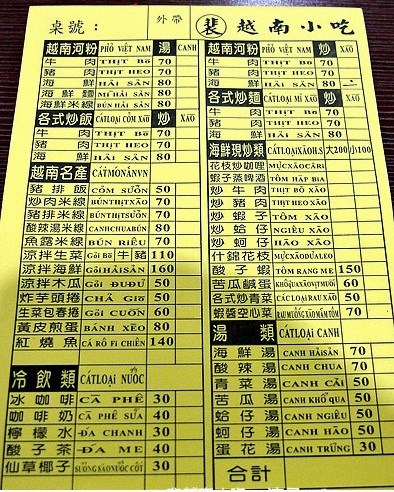 桌號： 外帶 裴 越南小吃
越南河粉 PHỞ VIỆT NAM 湯 CANH
牛肉 THỊT Bò 70
豬肉 THỊT HEO 70
海鮮 HẢI SẢN 80
海鮮麵 Mì HẢI SẢN 80
海鮮米線 BÚN HẢI SẢN 80
各式炒飯 CÁTLOẠI CƠM XÀO 炒 XÀO
牛肉 THỊT Bò 70
豬肉 THỊT HEO 70
海鮮 HẢI SẢN 80
越南名產 CÁTMÓNĂNVN
豬排飯 CƠM SƯỜN 50
炒肉米線 BÚNTHỊTXÀO 70
豬排米線 BÚNTHỊTSƯỜN 70
酸辣湯米線 CANHCHUABÚN 80
魚露米線 BÚN RIÊU 70
涼拌生菜 GỏI Bò 牛豬 110
涼拌海鮮 GỏI HẢI SẢN 160
涼拌木瓜 GỏI ĐUĐỦ 50
炸芋頭捲 CHẢ Giò 50
生菜包春捲 GỏI CUỐN 60
黃皮煎蛋 BÁNH XÈO 80
紅燒魚 CÁ RÔ FI CHIÊN 140
冷飲類 CÁTLOẠI NƯỚC
冰咖啡 CÀ PHÊ 30
咖啡奶 CÀ PHÊ SỮA 40
檸檬水 ĐÁ CHANH 30
酸子茶 ĐÁ ME 40
仙草椰子 SƯƠNG SÁO NƯỚC CỐT 30
越南河粉 PHỞ VIỆT NAM 炒 XÀO
牛肉 THỊT Bò 70
豬肉 THỊT HEO 70
海鮮 HẢI SẢN 80
各式炒麵 CÁTLOẠI MÌ XÀO 炒 XÀO
牛肉 THỊT Bò 70
豬肉 THỊT HEO 70
海鮮 HẢI SẢN 80
海鮮現炒類 CÁTLOẠIXÀOH.S 大200小100
花枝炒咖哩 MỰCXÀOCÀRI
蝦子蒸啤酒 TÔM HẤP BIA
炒牛肉 THỊT BÒ XÀO
炒豬肉 THỊT HEO XÀO
炒蝦子 TÔM XÀO
炒蛤仔 NGIÊU XÀO
炒蚵仔 HÀO XÀO
什錦花枝 MỰCXÀODƯALEO
酸子蝦 TÔM RANG ME 150
苦瓜鹹蛋 KHỔQUAXÀOTRỨNGMUỐI 60
各式炒青菜 CÁC LOẠI RAU XÀO 50
蝦醬空心菜 RAU MUỐNG XÀO MẮM TÔM 70
湯類 CÁTLOẠI CANH
海鮮湯 CANH HẢISẢN 70
酸辣湯 CANH CHUA 70
青菜湯 CANH CẢI 50
苦瓜湯 CANH KHỔ QUA 50
蛤仔湯 CANH NGIÊU 50
蚵仔湯 CANH HÀO 50
蛋花湯 CANH TRỨNG 30
合計